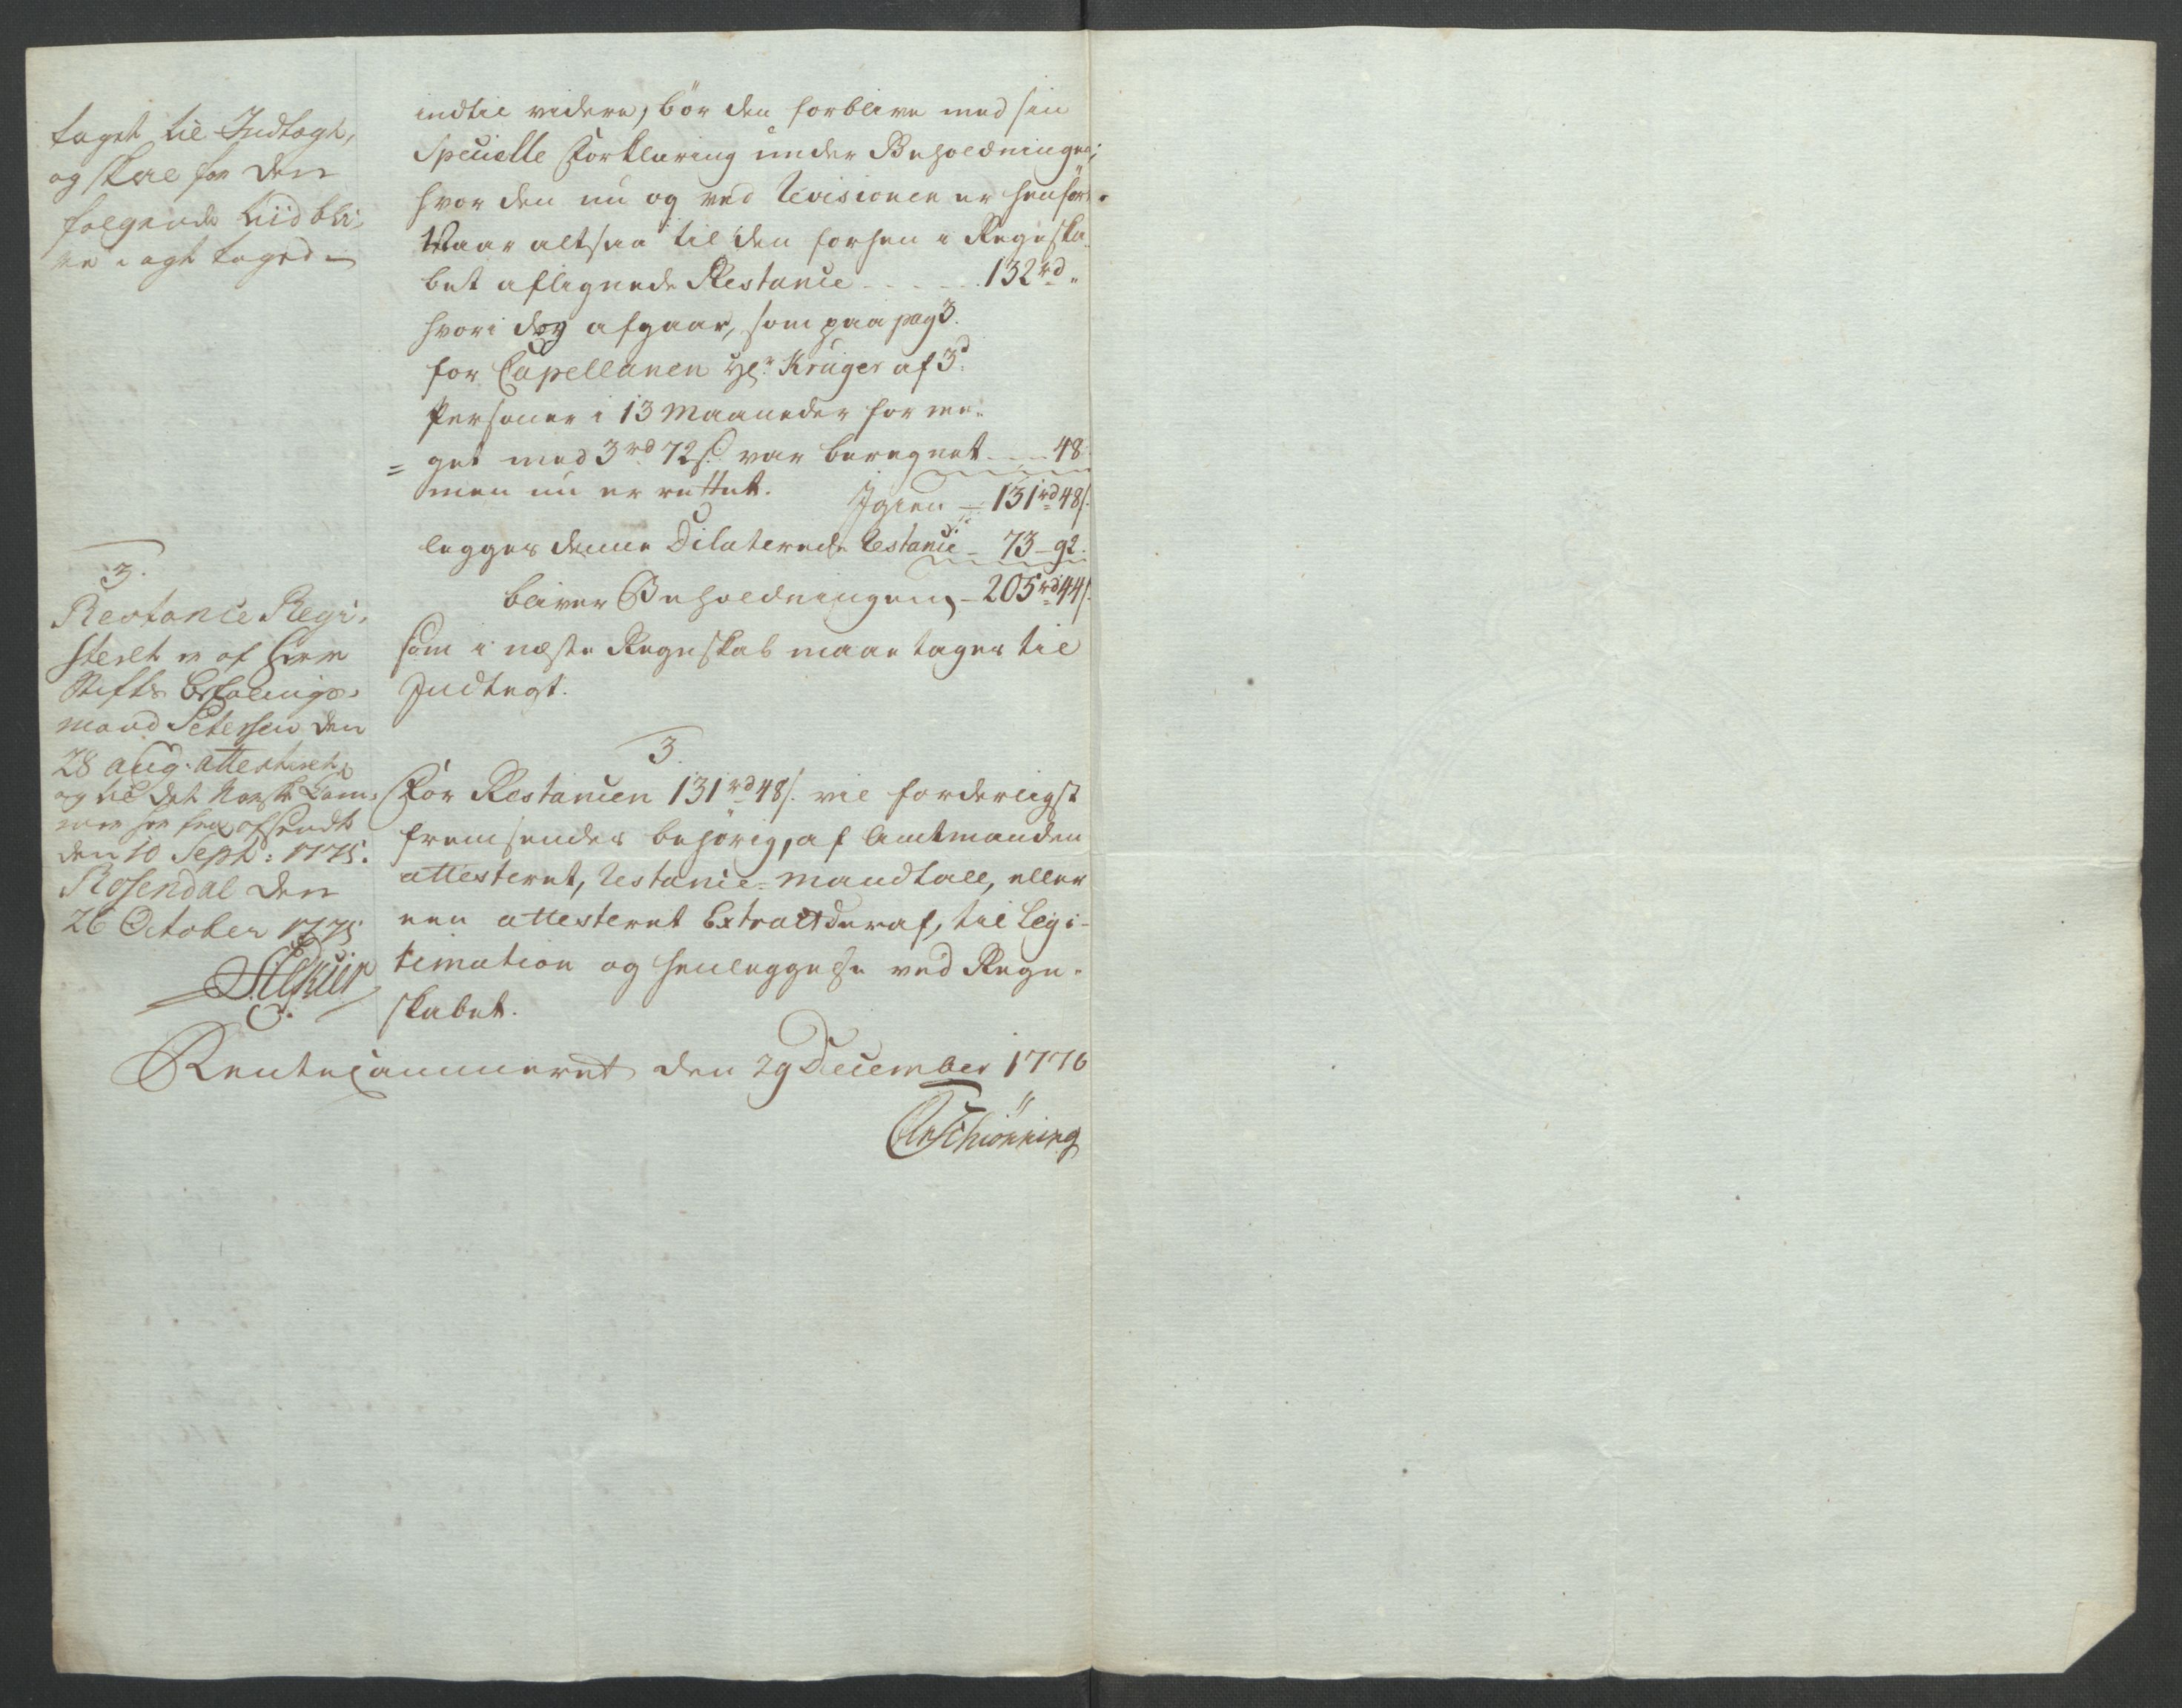 taget til Indtægt,
og skal for den
følgende tiid bli-
ve i agt taged
3.
Restance Regi-
steret er af Herr
Stifts Befalings-
mand Petersen den
28 Aug. attesteret,
og til det Norske Cam-
mer her fra afsendt
den 10 Sept: 1775.
Rosendal den
26 October 1775
indtil videre, bör den forblive med sin
Specielle Forklaring under Beholdningen;
hvor den nu og ved Revisionen er henført.
Naar altsaa til den forhen i Regnska-
bet aflignede Restance - - - - 132 rd "
hvori dog afgaar, som paa pag 3.
for Capellanen Hr. Krüger af 3de
Personer i 13 Maaneder for me-
get med 3 rd 72 s. var beregnet - - 48
men nu er rettet. Igien - 131 rd 48 s.
legges denne Dilaterede Restance - 73 - 92.
bliver Beholdningen - 205 rd 44 s.
som i næste Regnskab maae tages til
Indtegt.
3.
For Restancen 131 rd 48 s. vil forderligst
fremsendes behörig, af Amtmanden
attesteret, Restance-Mandtall, eller
een attesteret Extract deraf, til Legi-
timation og henleggelse ved Regn-
skabet.
Rentecammeret den 29 December 1776
Schiönning